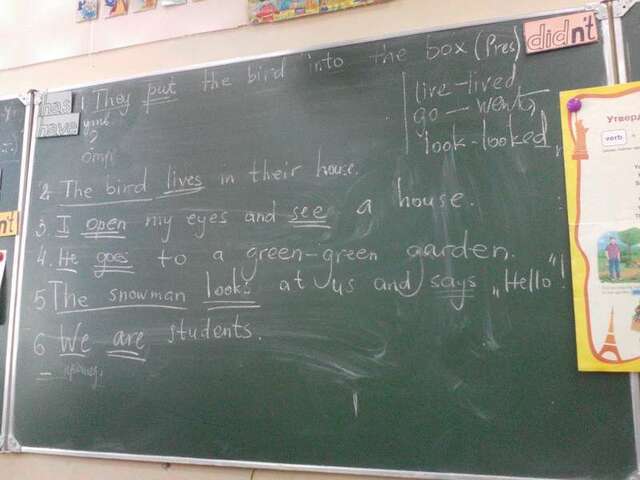 didn't
has
have
1 They put the bird into the box (Pres)
утв
?
отр
live-lived
go-went
look-looked
2. The bird lives in their house.
3. I open my eyes and see a house.
4. He goes to a green-green garden.
5 The snowman looks at us and says „Hello"!
6 We are students.
n't
Утверд
verb